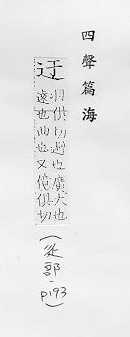 四聲篇海
迂
羽俱切避也廣大也
遠也曲也又憶俱切
(辵部-
p193)